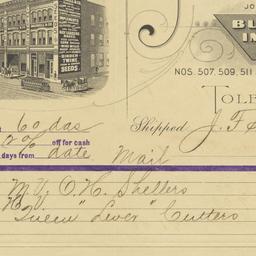 JO
BU
IN
NOS. 507, 509, 511
IMPLEMENTS
BINDER
TWINE
SEEDS
TOLE
60 das
Shipped J. F.
off for cash
days from date
Mail
M. J. O. K. Shellers
Queen "Lever" Cutters